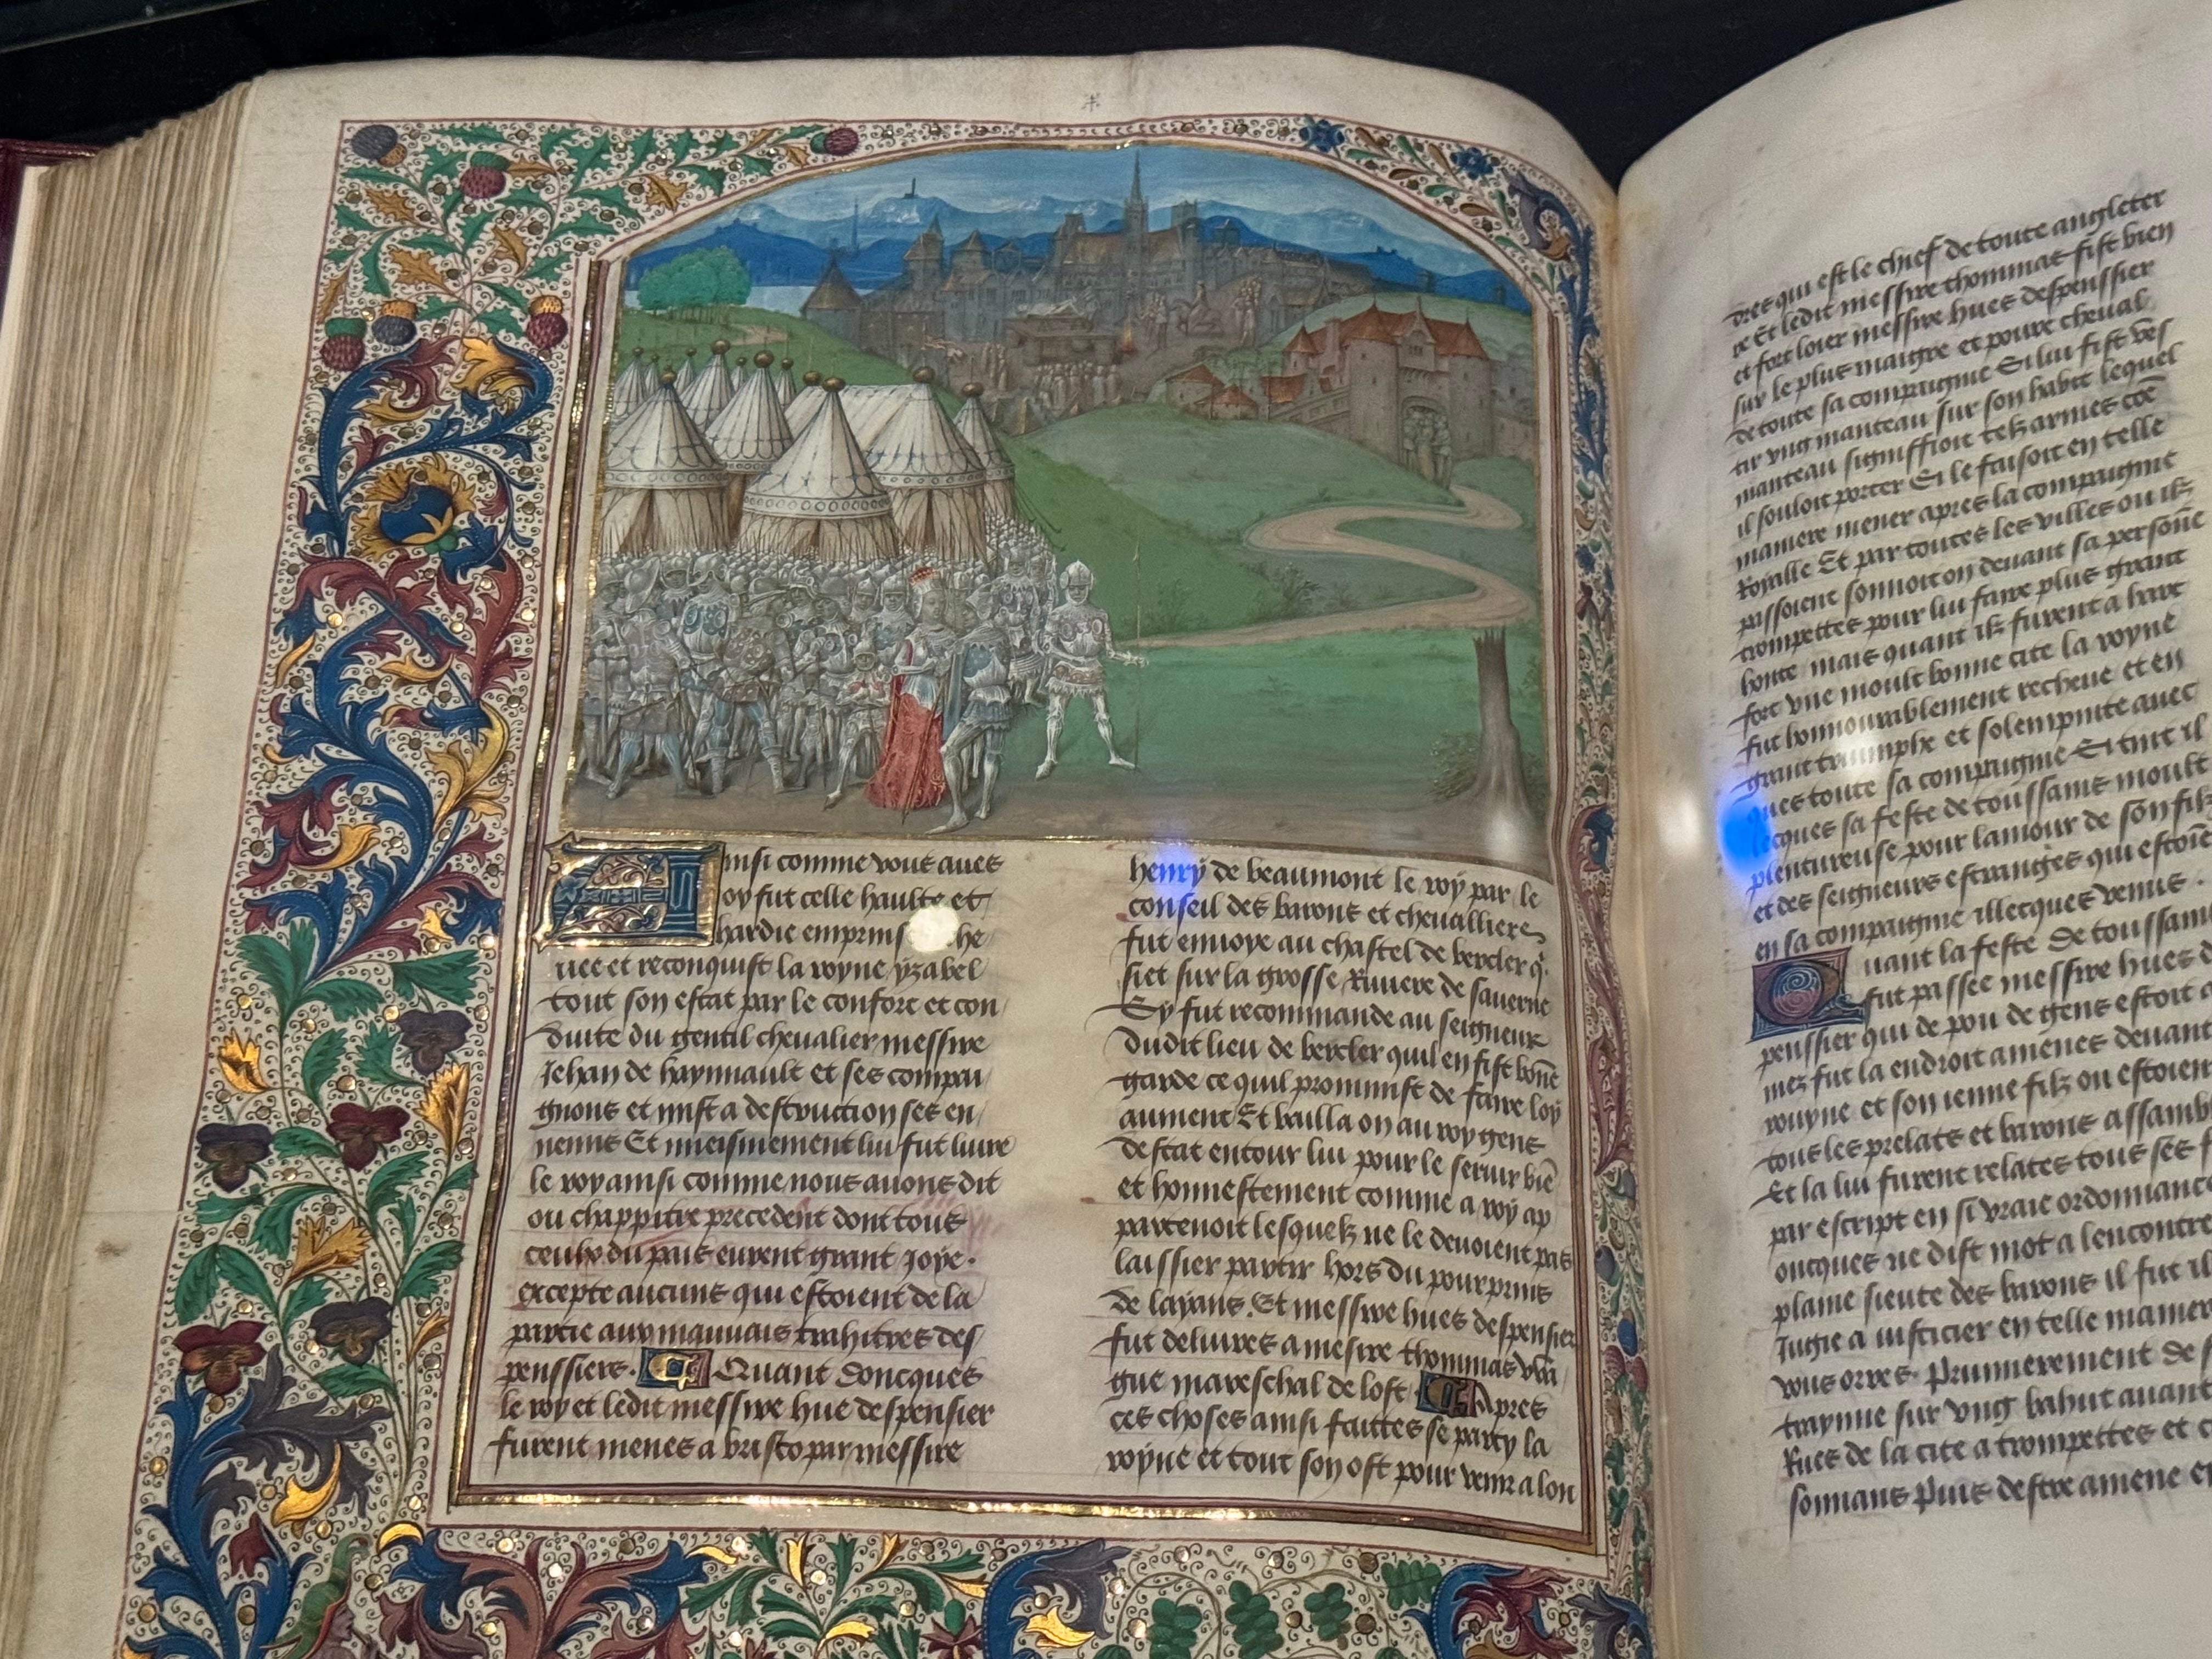 Ainsi comme vous aues
oy fut celle haulte et
hardie emprinse
uee et reconquist la royne yzabel
tout son estat par le confort et con
duite du gentil chevalier messire
Jehan de haynnault et ses compai
gnons et mist a destruction ses en
nemis Et meismement lui fut liure
le roy ainsi comme nous auons dit
ou chappitre precedent dont tous
ceulx du pais eurent grant Joye.
excepte aucuns qui estoient de la
partie aux mauuais trahitres des
penssiers. Quant doncques
le roy et ledit messire hue despensier
furent menes a bristo par messire
henry de beaumont le roy par le
conseil des barons et chevalliers
fut enuoye au chastel de bercler q'
siet sur la grosse Riuiere de sauerne
Sy fut recommande au seigneur
dudit lieu de bercler quil en fist bōne
garde ce quil prommist de faire loy
aument Et bailla on au roy gens
destat entour lui pour le seruir biē
et honnestement comme a roy ap
partenoit lesquelz ne le deuoient pas
laissier partir hors du pourprins
de layans. Et messire hues despensier
fut deliures a mesire thommas
gue mareschal de lost Apres
ces choses ainsi faittes se party la
royne et tout son ost pour venir a lon
dres qui est le chief de toute angleter
re Et ledit messire thommas fist bien
et fort loier messire hues despenssier
sur le plus maigre et poure cheual
de toute sa compaignie Si lui fist ves
tir vng manteau sur son habit lequel
manteau signiffioit telz armes cōe
il souloit porter Si le faisoit en telle
maniere mener apres la compaignie
Royalle Et par toutes les villes ou ilz
passoient sonnoit on deuant sa personē
trompettes pour lui faire plus grant
honte mais quant ilz furent a harc
fort vne moult bonne cite la royne
fut honnourablement recheue et en
grant triumphe et solempnite auec
ques toute sa compaignie Si tint il
lecques sa feste de toussains moult
plentureuse pour lamour de son filz
et des seigneurs estranges qui estoiēt
en sa compaignie illecques venus.
Quant la feste de toussain
fut passee messire hues d
penssier qui de pou de gens estoit a
mez fut la endroit amenes deuant
rouyne et son ienne filz ou estoien
tous les prelats et barons assamb
Et la lui furent relates tous ses
par escript en si vraie ordonnance
oncques ne dist mot a lencontre
plaine sieute des barons il fut il
Jugie a iusticier en telle manier
vous orres. Prumierement
traynne sur vng bahut auant
Rues de la cite a trompettes et
sonnans Puis destre amene en